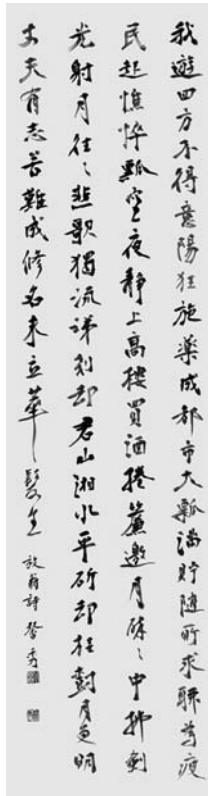 我遊四方不得意陽狂施藥成都市大瓢滿貯隨所求聊為疲
民起憔悴瓢空夜靜上高樓買酒捲簾邀月醉〻中拂劍
光射月往〻悲歌獨流涕剗却君山湘水平斫却桂樹月更明
丈夫有志苦難成修名未立華髮生 放翁詩